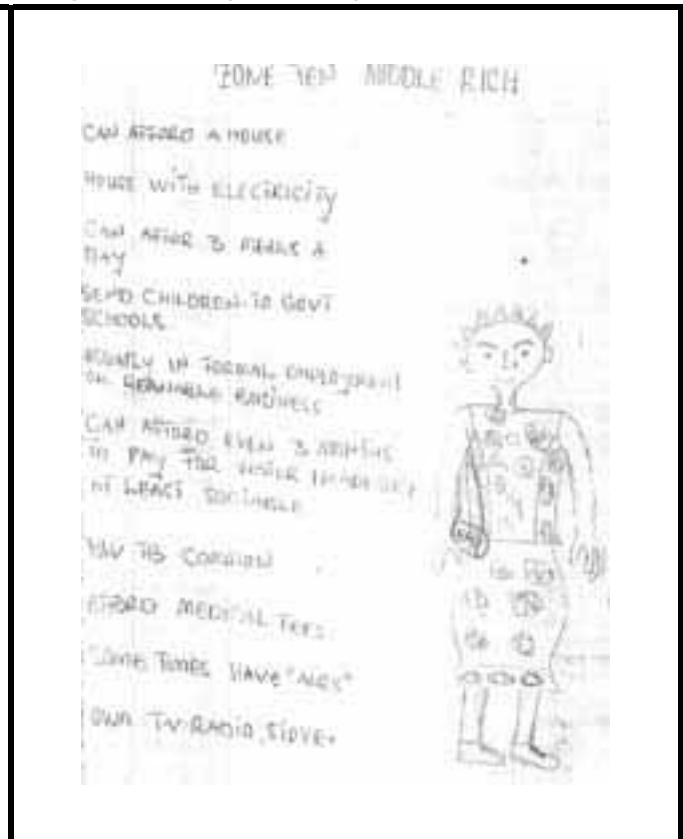 ZONE TEN MIDDLE RICH
CAN AFFORD A HOUSE
HOUSE WITH ELECTRICITY
CAN AFFOR 3 MEALS A
DAY
SEND CHILDREN TO GOVT
SCHOOLS
IN FORMAL EMPLOYMENT
OR BUSINESS
CAN AFFORD EVEN 3 MONTHS
TO PAY FOR WATER
AT LEAST SOCIABLE
TB COMMON
AFFORD MEDICAL FEES
SOME TIMES HAVE "AIDS"
OWN TV RADIO, STOVE